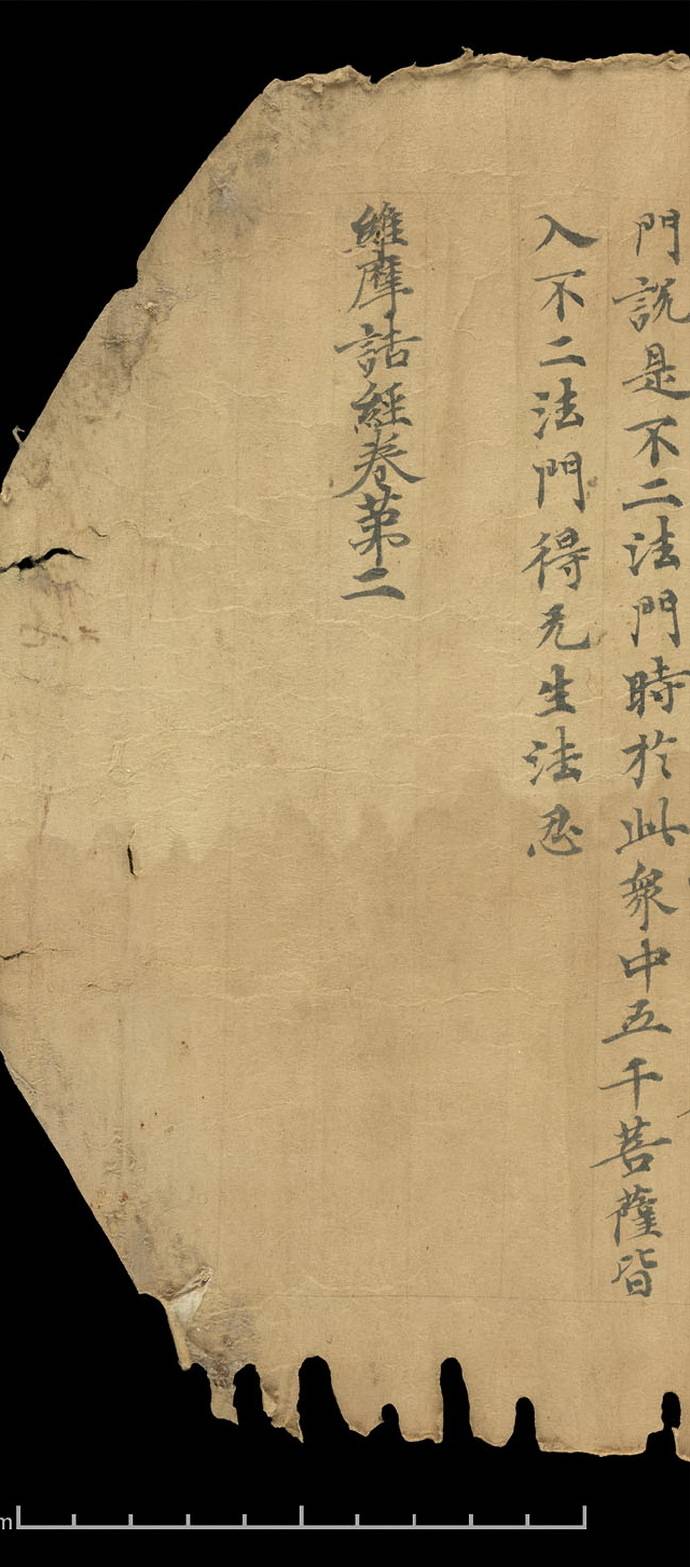 門說是不二法門時於此衆中五千菩薩皆
入不二法門得无生法忍
維摩詰經卷第二
m